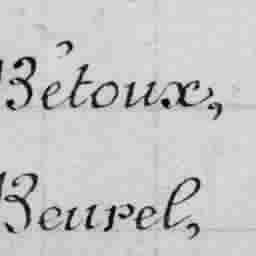 Bétoux,
Beurel,